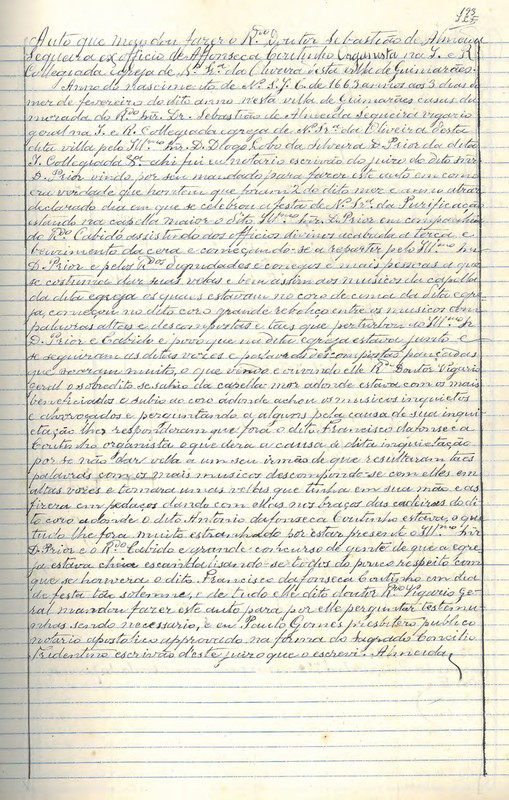 133
Auto que mandou fazer o R.do Doutor Sebastião de Almeida
Sequeira ex officio de Affonseca Coutinho Organista na I. e R.
Collegiada egreja de N. Sr.a da Oliveira desta villa de Guimarães.
Anno do nascimento de N. S. J. C. de 1663 annos aos 3 dias do
mez de fevereiro do dito anno nesta villa de Guimarães casas da
morada do R.do Snr. Dr. Sebastião de Almeida Sequeira vigario
geral na I. e R. Collegiada egreja de N. Sr.a da Oliveira desta
dita villa pelo Ill.mo Snr. D. Diogo Lobo da Silveira D. Prior da dita
I. Collegiada &.a ahi fui eu notario escrivão do juizo do dito Snr.
D. Prior vindo por seu mandado para fazer este auto em como
era verdade que hontem que foram 2 do dito mez e anno atraz
declarado dia em que se celebrou a festa de N. Sr.a da Purificação
estando na capella maior o dito Ill.mo Snr. D. Prior em companhia
do R.do Cabido assistindo aos officios divinos acabada a terça e
benzimento da cera e começando-se a repartir pelo Ill.mo Snr.
D. Prior e pelos R.dos Dignidades e conegos e mais pessoas a que
se costuma dar suas vellas e bem assim aos musicos da capella
da dita egreja os quaes estavam no coro de cima da dita egre-
ja, começou no dito coro grande reboliço entre os musicos com
palavras altas e descompostas e taes que perturbou ao Ill.mo Snr
D. Prior e Cabido e povo que na dita egreja estava junto e
se seguiram as ditas vozes e palavras descompostas pancadas
que soaram muito, o que vendo e ouvindo elle R.do Doutor Vigario
Geral o sobredito se sahio da capella mor adonde estava com os mais
beneficiados e subio ao coro adonde achou os musicos inquietos
e alvoroçados e perguntando a alguns pela causa de sua inqui-
etação lhe responderam que fora o dito Francisco da Fonseca
Coutinho organista o que dera a causa á dita inquietação
por se não dar vella a um seu irmão de que resultaram taes
palavras com os mais musicos descompondo-se com elles em
altas vozes e tomara umas vellas que tinha em sua mão e as
fizera em pedaços dando com ellas nos braços das cadeiras do di-
to coro adonde o dito Antonio da Fonseca Coutinho estava, o que
tudo lhe fora muito estranhado por estar presente o Ill.mo Snr
D. Prior e o R.do Cabido e grande concurso de gente de que a egre-
ja estava cheia escandalisando-se todos do pouco respeito com
que se houvera o dito Francisco da Fonseca Coutinho em dia
de festa tão solemne, e de tudo elle dito doutor R.do Vigario Ge-
ral mandou fazer este auto para por elle perguntar testemu-
nhas sendo necessario, e eu Paulo Gomes presbitero publico
notario apostolico approvado na forma do Sagrado Concilio
Tridentino escrivão d'este juizo que o escrevi. Almeida